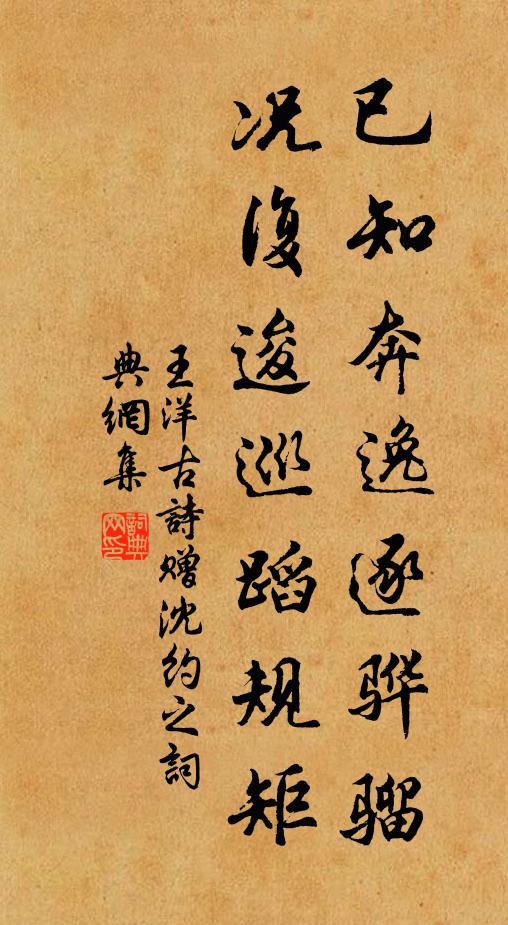 已知奔逸逐骅骝
况復逡巡蹈規矩
王洋古詩贈沈约之詞
典網集
詞典网印